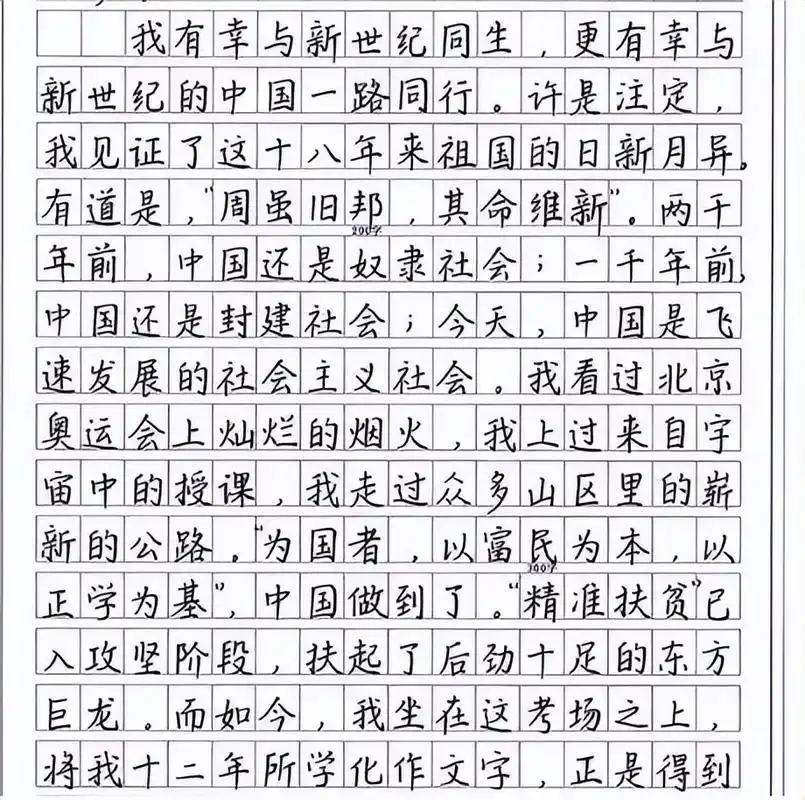 我有幸与新世纪同生，更有幸与
新世纪的中国一路同行。许是注定，
我见证了这十八年来祖国的日新月异。
有道是，“周虽旧邦，其命维新”。两千
200字
年前，中国还是奴隶社会；一千年前，
中国还是封建社会；今天，中国是飞
速发展的社会主义社会。我看过北京
奥运会上灿烂的烟火，我上过来自宇
宙中的授课，我走过众多山区里的崭
新的公路。“为国者，以富民为本，以
正学为基”，中国做到了。“精准扶贫”已
入攻坚阶段，扶起了后劲十足的东方
巨龙。而如今，我坐在这考场之上，
将我十二年所学化作文字，正是得到